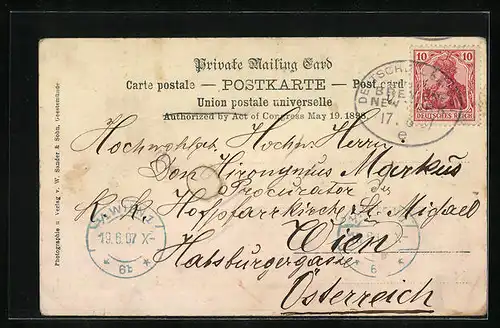 Private Mailing Card
Carte postale — POSTKARTE — Post card
Union postale universelle
Authorized by Act of Congress May 19. 1898
10 10
DEUTSCHES REICH
17.
e
Photographie u. Verlag v. W. Sander & Sohn, Geestemünde
Hochwohlgeb. Hochw. Herrn
Dom Hieronymus Markus
Procurator des
K. K. Hofpfarrkirche St. Michael
Wien
Habsburgergasse
Österreich
19.6.07 X-